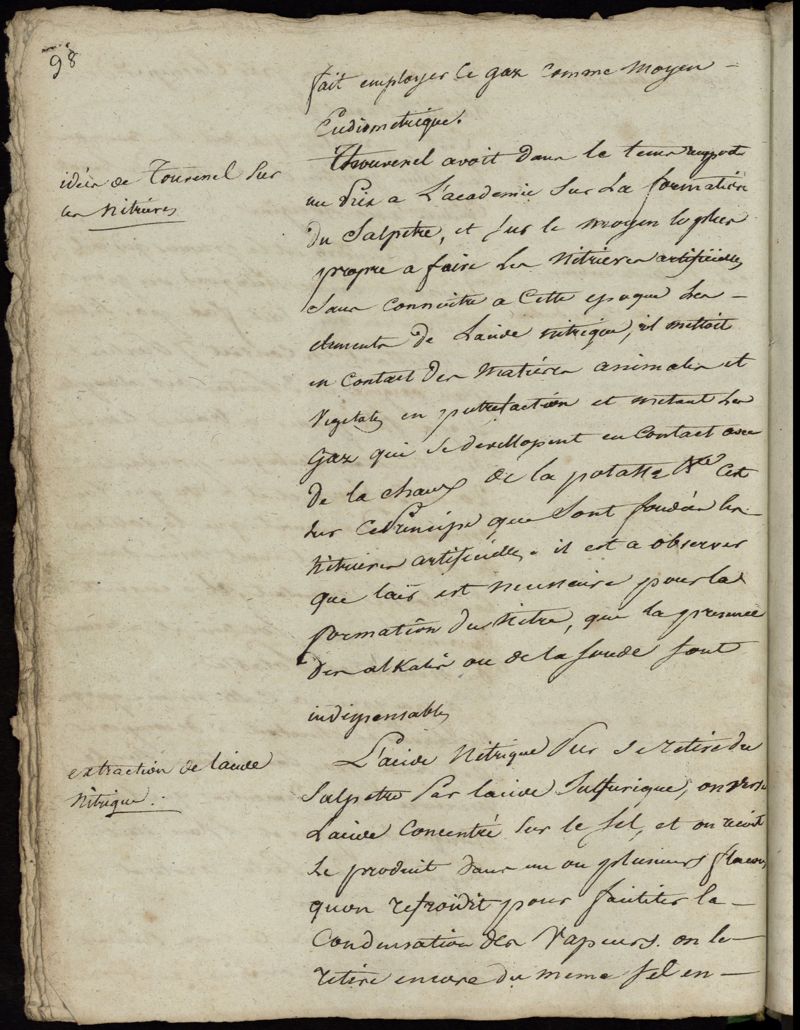 98
fait employer ce gaz comme moyen
Eudiometrique.
idées de Tourenel sur
les Nitrières
Thouvenel avoit dans le tems remporté
un Prix a L'academie sur La formation
du Salpetre, et sur le moyen le plus
propre a faire des Nitrieres artificielles
sans connoitre a cette epoque Les
elements de L'acide nitrique, il mettoit
en contact des matiéres animales et
Vegetales en putrefaction et metant les
gaz qui se devellopent en contact avec
de la chaux de la potasse &ca C'est
sur ce Principe que sont fondées les
Nitrieres artificielles. il est a observer
que l'air est necessaire pour la
formation du Nitre, que la presence
des alkalis ou de la soude sont
indispensables
extraction de l'acide
Nitrique.
L'acide Nitrique Pur se retire du
Salpetre Par l'acide Sulfurique, on verse
L'acide Concentré sur le Sel, et on recoit
Le produit dans un ou plusieurs flacons
qu'on refroidit pour faciliter la
Condensation des Vapeurs. on le
retire encore du meme sel en